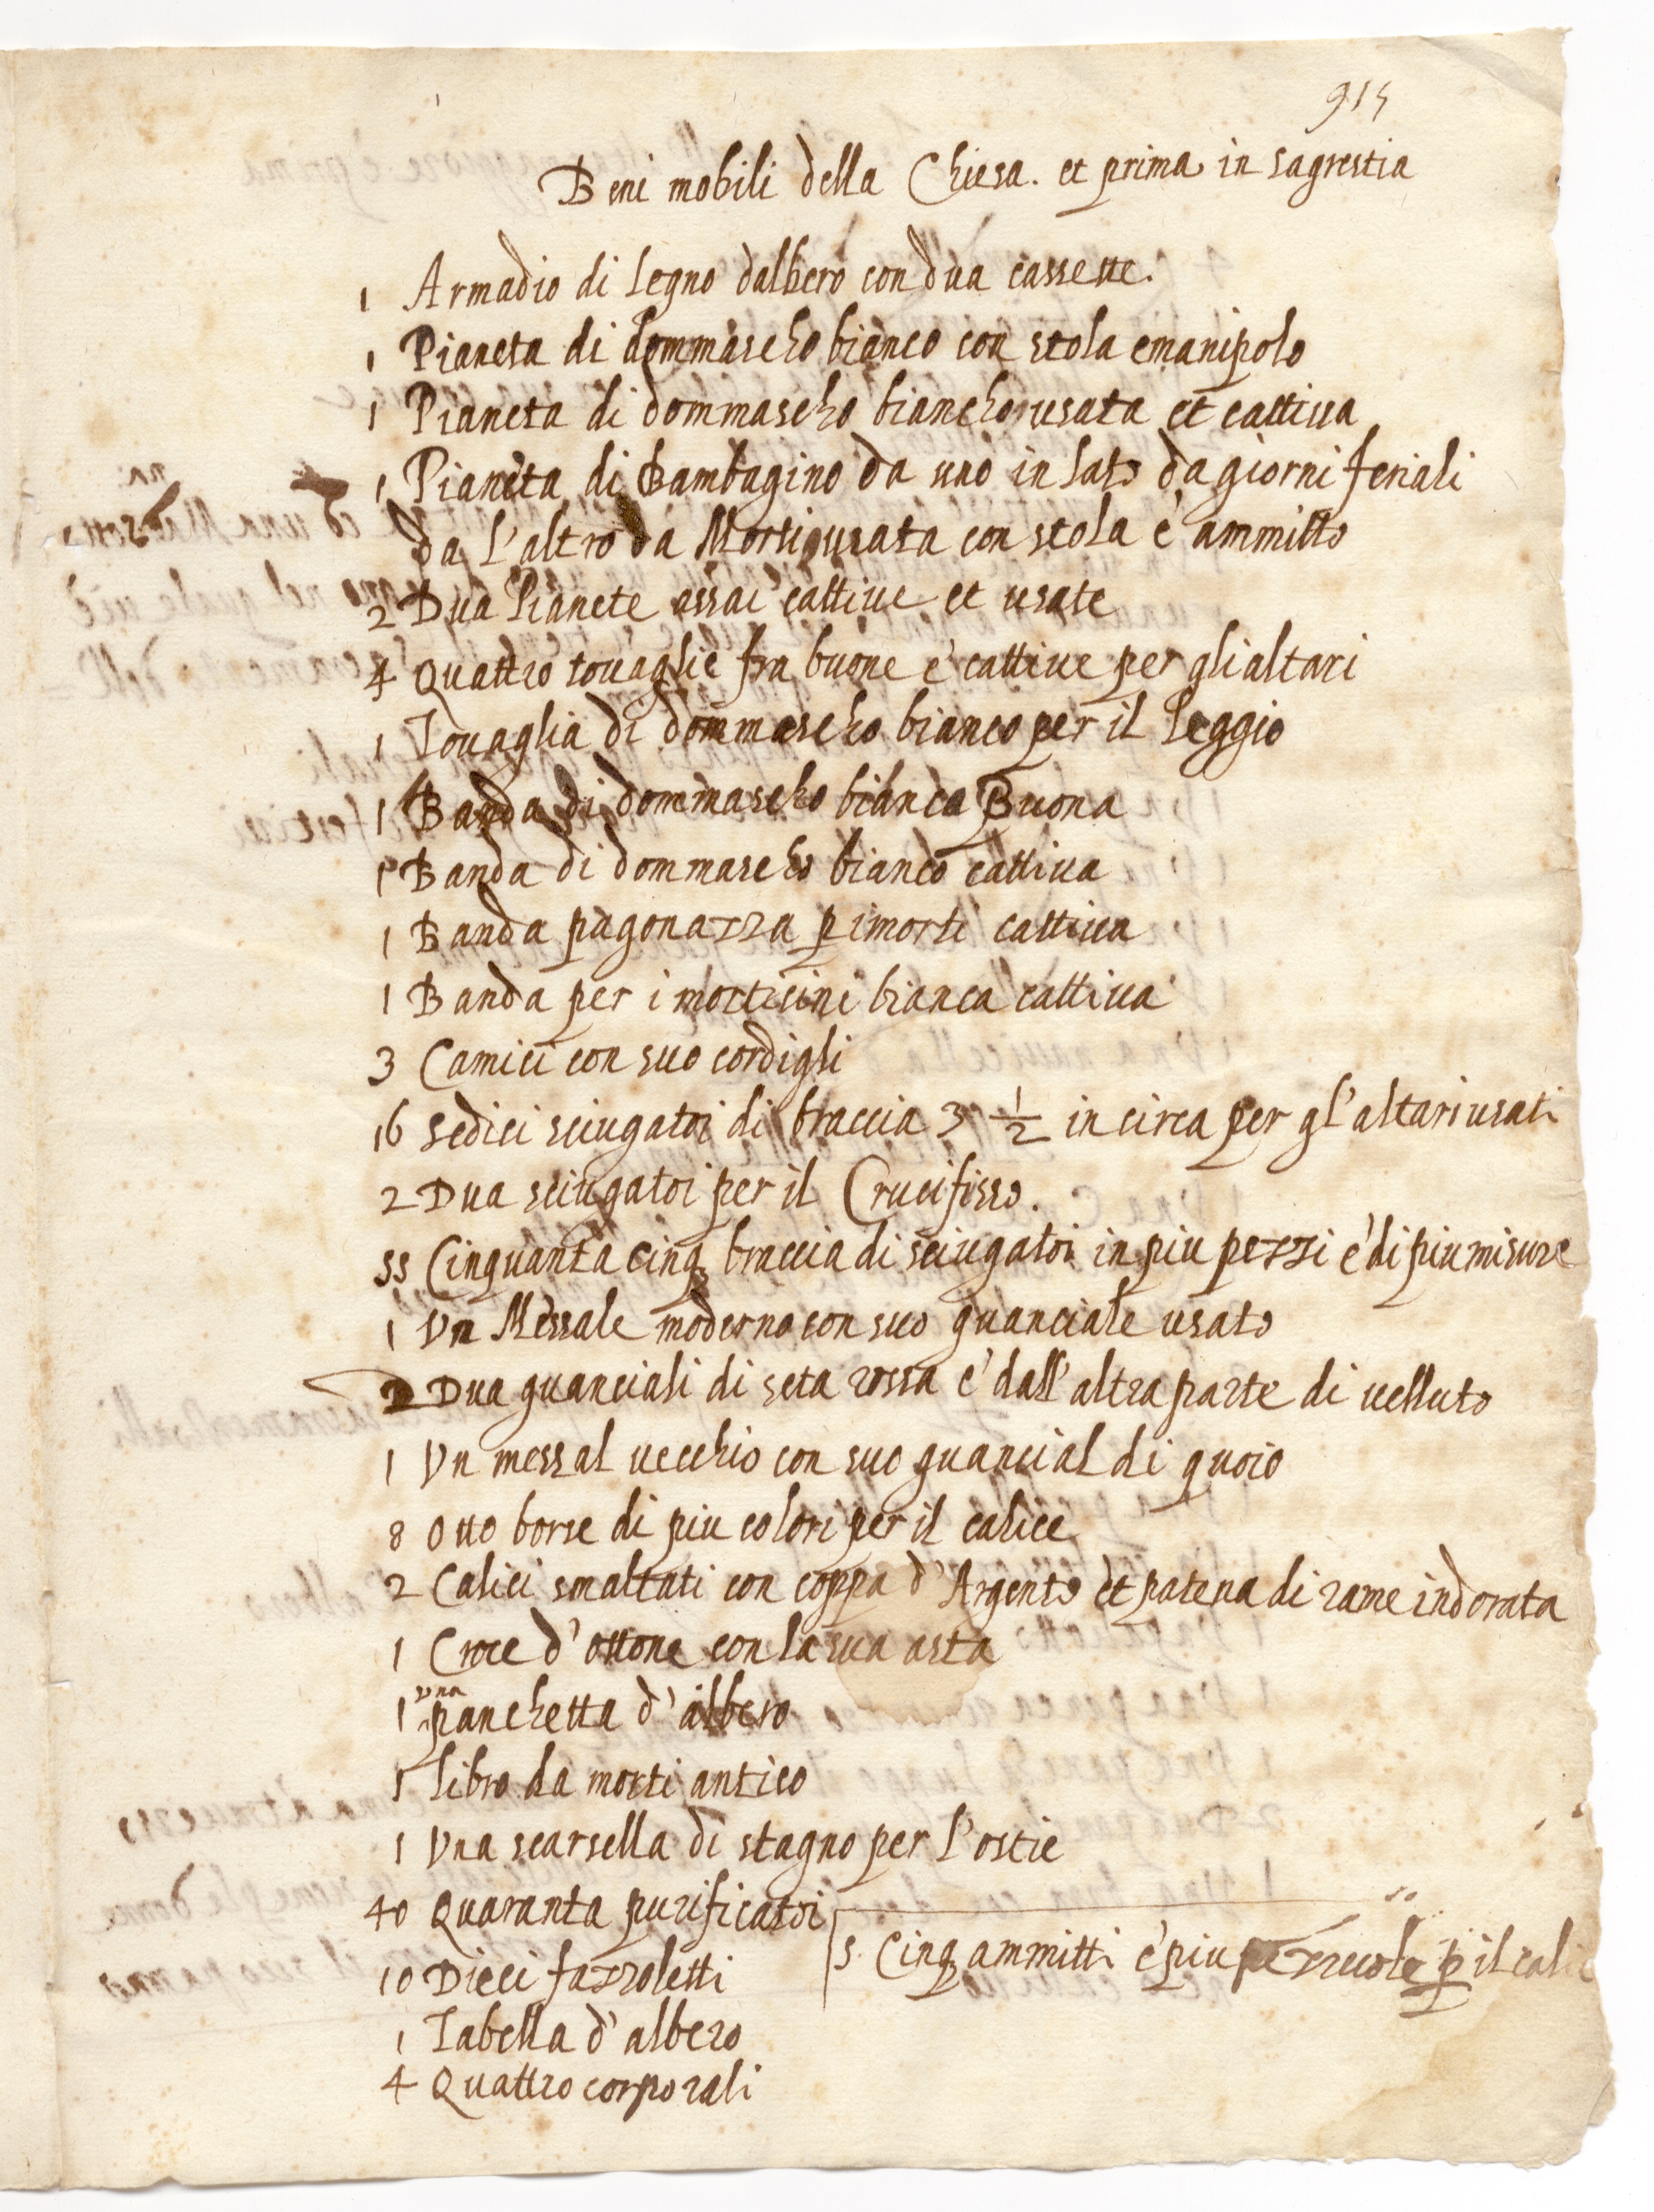 915
Beni mobili della Chiesa. et prima in sagrestia
1 Armadio di legno dalbero con dua cassette.
1 Pianeta di dommascho bianco con stola emanipolo
1 Pianeta di dommascho biancho usata et cattiua
1 Pianeta di Bambagino da uno in lato da giorni feriali
da l'altro da Morti usata con stola e ammitto
2 Dua Pianete assai cattiue et usate
4 Quattro touaglie fra buone e cattiue per glialtari
1 Touaglia di dommascho bianco per il leggio
1 Banda di dommascho bianca Buona
1 Banda di dommascho bianco cattiua
1 Banda pagonazza p imorti cattiua
1 Banda per i morticini bianca cattiua
3 Camici con suo cordigli
16 Sedici sciugatoi di braccia 3 1/2 in circa per gl'altari usati
2 Dua sciugatoi per il Crucifisso.
55 Cinquanta cinq braccia di sciugatoi in piu pezzi e di piu misure
1 Vn Messale moderno con suo guanciale usato
2 Dua guanciali di seta rossa e dall'altra parte di uelluto
1 Vn messal uecchio con suo guancial di quoio
8 Otto borse di piu colori per il calice
2 Calici smaltati con coppa d'Argento et patena di rame indorata
1 Croce d'ottone con la sua asta
1 una panchetta d'albero
1 libro da morti antico
1 Vna scarsella di stagno per l'ostie
40 Quaranta purificatoi
5. Cinq ammitti e piu pezzuole p il calic
10 Dieci fazzoletti
1 Tabella d'albero
4 Quattro corporali